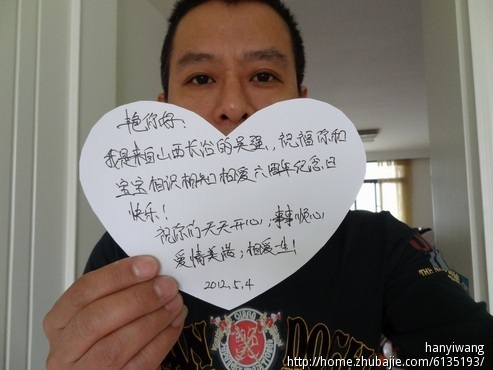 艳你好！
我是来自山西长治的吴强，祝福你和
宝宝相识相知相爱六周年纪念日
快乐！
祝你们天天开心，事事顺心，
爱情美满；相爱一生！
2012.5.4
hanyiwang
http://home.zhubajie.com/6135193/